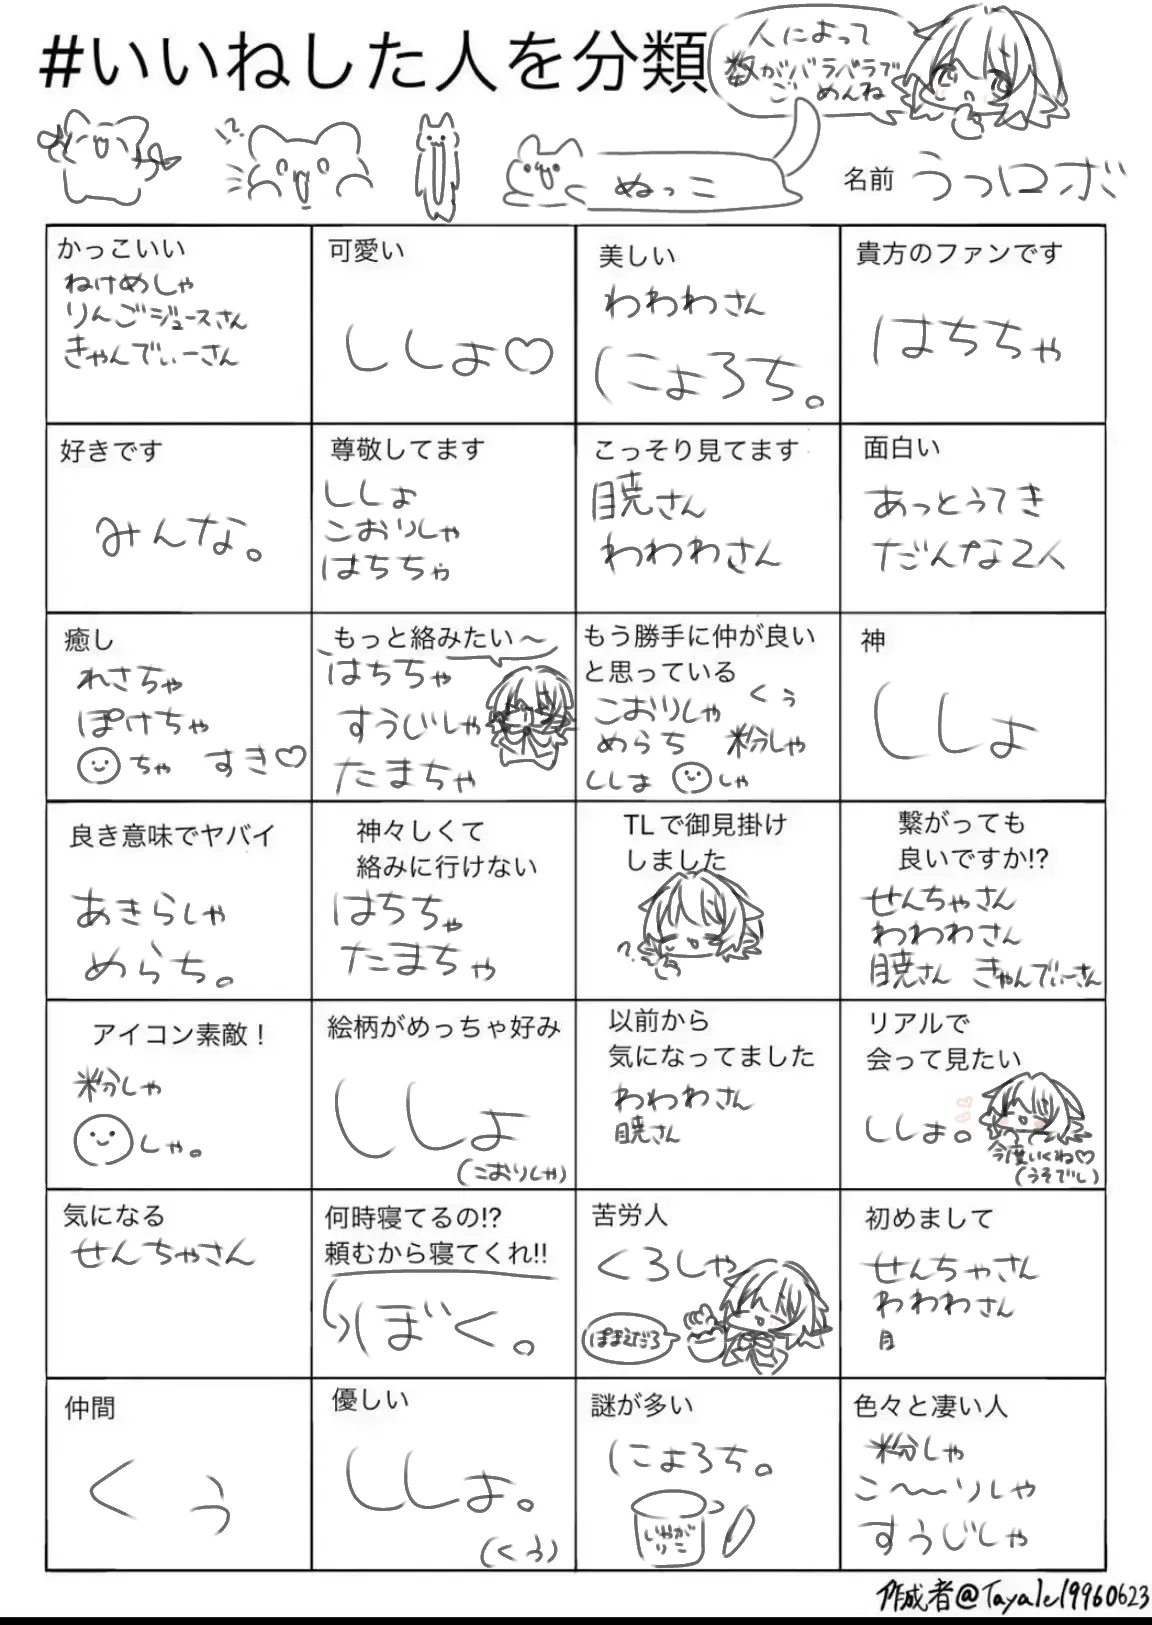 #いいねした人を分類
人によって
数がバラバラで
ごめんね
ぬっこ
名前 うっロボ
かっこいい
ねけめしゃ
りんごジュースさん
きゃんでぃーさん
可愛い
ししょ♡
美しい
わわわさん
にょろち。
貴方のファンです
はちちゃ
好きです
みんな。
尊敬してます
ししょ
こおりしゃ
はちちゃ
こっそり見てます
暁さん
わわわさん
面白い
あっとうてき
だんな2人
癒し
れさちゃ
ぽけちゃ
ちゃ すき♡
もっと絡みたい〜
はちちゃ
すうじしゃ
たまちゃ
もう勝手に仲が良い
と思っている
こおりしゃ くぅ
めらち 粉しゃ
ししょ しゃ
神
ししょ
良き意味でヤバイ
あきらしゃ
めらち。
神々しくて
絡みに行けない
はちちゃ
たまちゃ
TLで御見掛け
しました
繋がっても
良いですか!?
せんちゃさん
わわわさん
暁さん きゃんでぃーさん
アイコン素敵！
粉しゃ
しゃ。
絵柄がめっちゃ好み
ししょ
(こおりしゃ)
以前から
気になってました
わわわさん
暁さん
リアルで
会って見たい
ししょ。
今度いくね♡
(うそでし)
気になる
せんちゃさん
何時寝てるの!?
頼むから寝てくれ!!
ぼく。
苦労人
くろしゃ
初めまして
せんちゃさん
わわわさん
仲間
くぅ
優しい
ししょ。
(くぅ)
謎が多い
にょろち。
色々と凄い人
粉しゃ
こ〜〜りしゃ
すうじしゃ
作成者@Tayale19960623